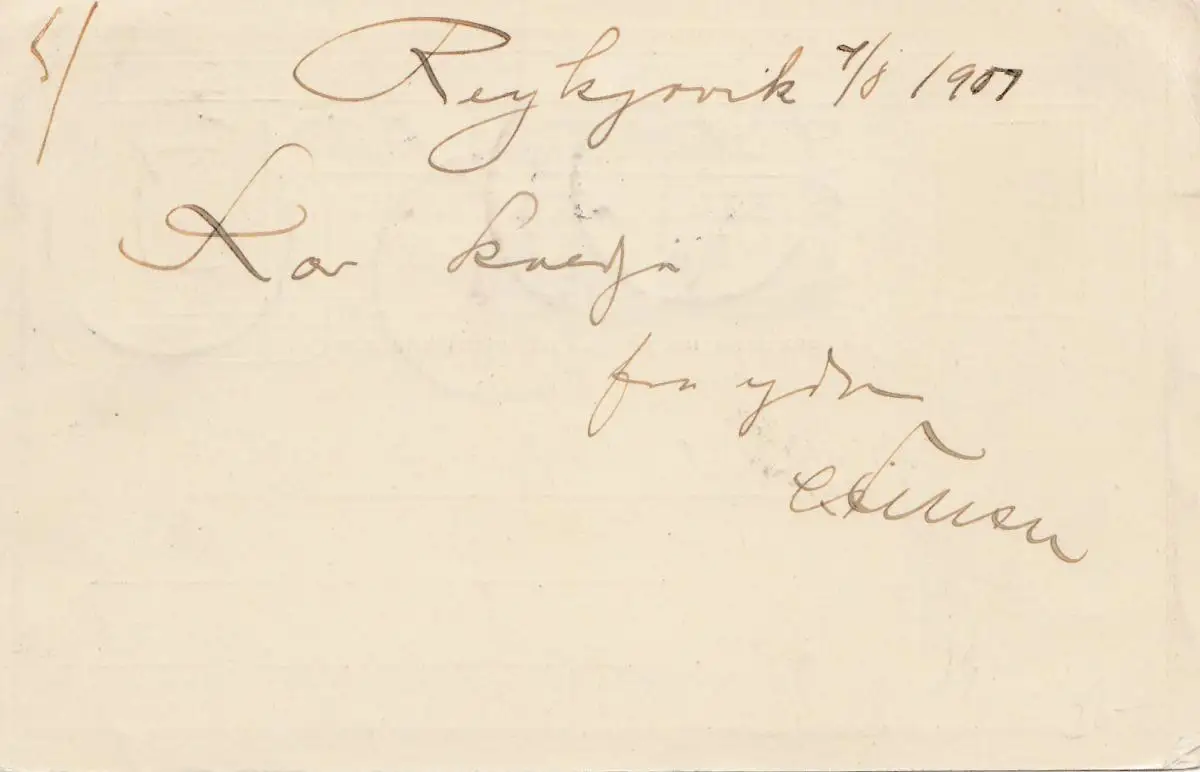 5/
Reykjavik 7/8 1907
Kær kvedja
fra ydar